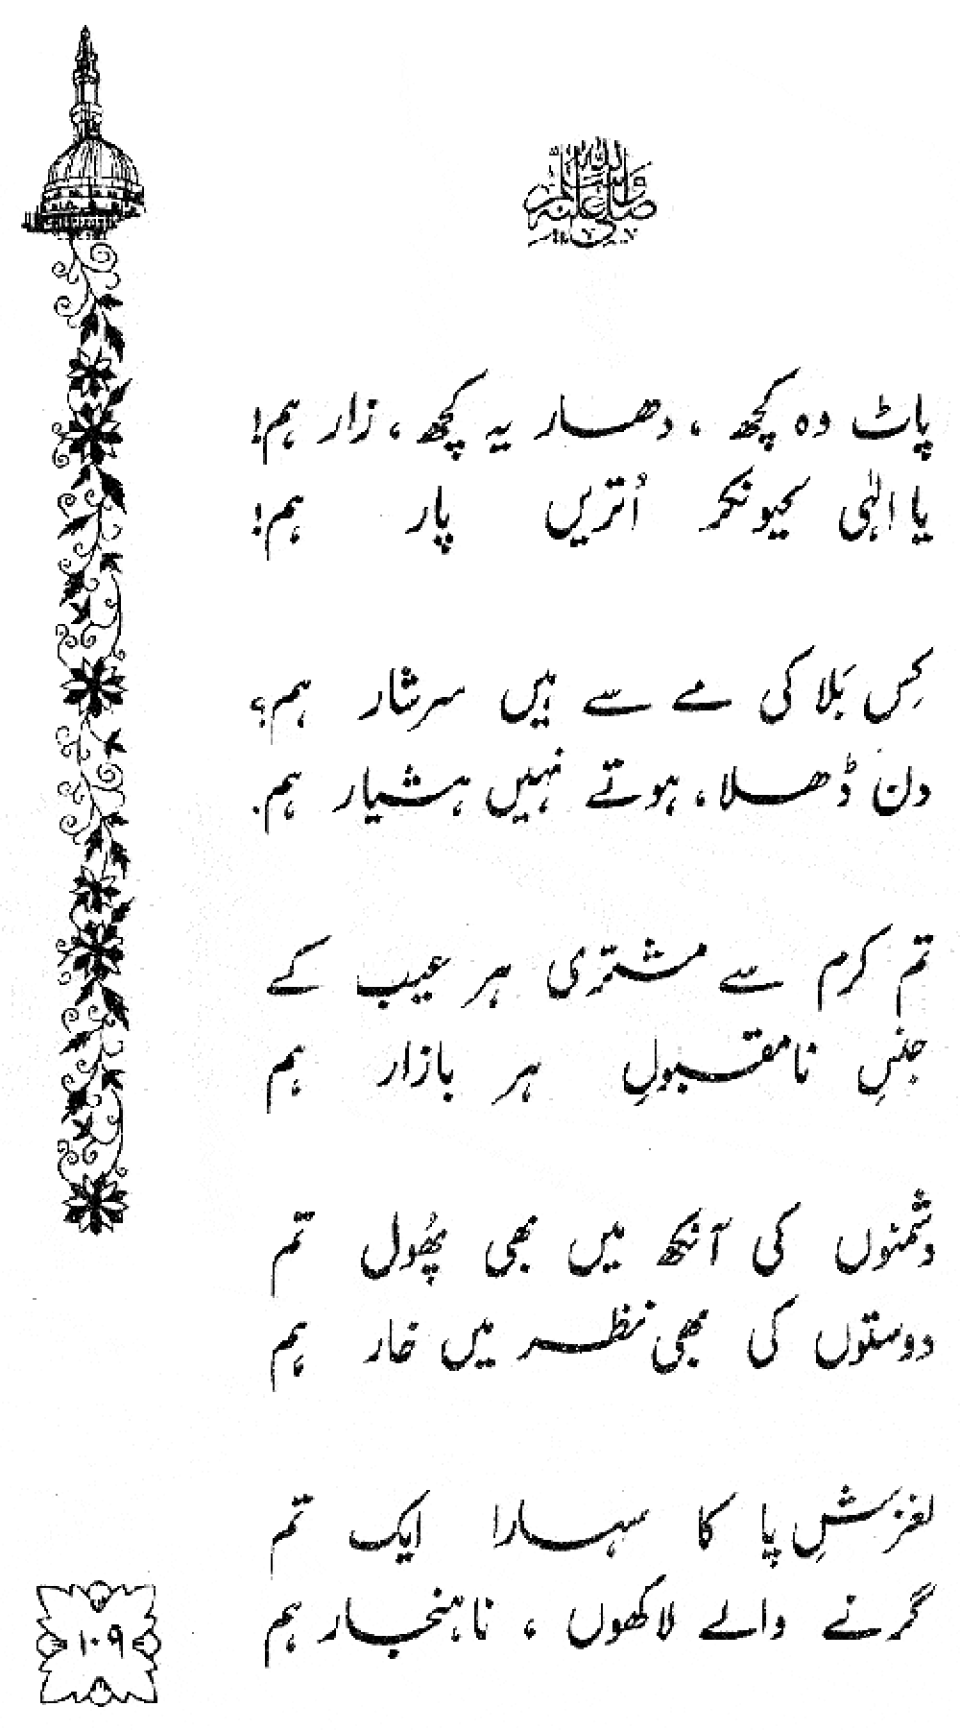 صلى الله عليه وسلم
پاٹ وہ کچھ ، دھار یہ کچھ ، زار ہم!
یا الٰہی کیونکر اُتریں پار ہم!
کِس بَلا کی مے سے ہیں سرشار ہم؟
دن ڈھلا ، ہوتے نہیں ہشیار ہم.
تم کرم سے مشتری ہر عیب کے
جنسِ نامقبولِ ہر بازار ہم
دشمنوں کی آنکھ میں بھی پھُول تم
دوستوں کی بھی نظر میں خار ہم
لغزشِ پا کا سہارا ایک تم
گرنے والے لاکھوں ، ناہنجار ہم
۱۰۹